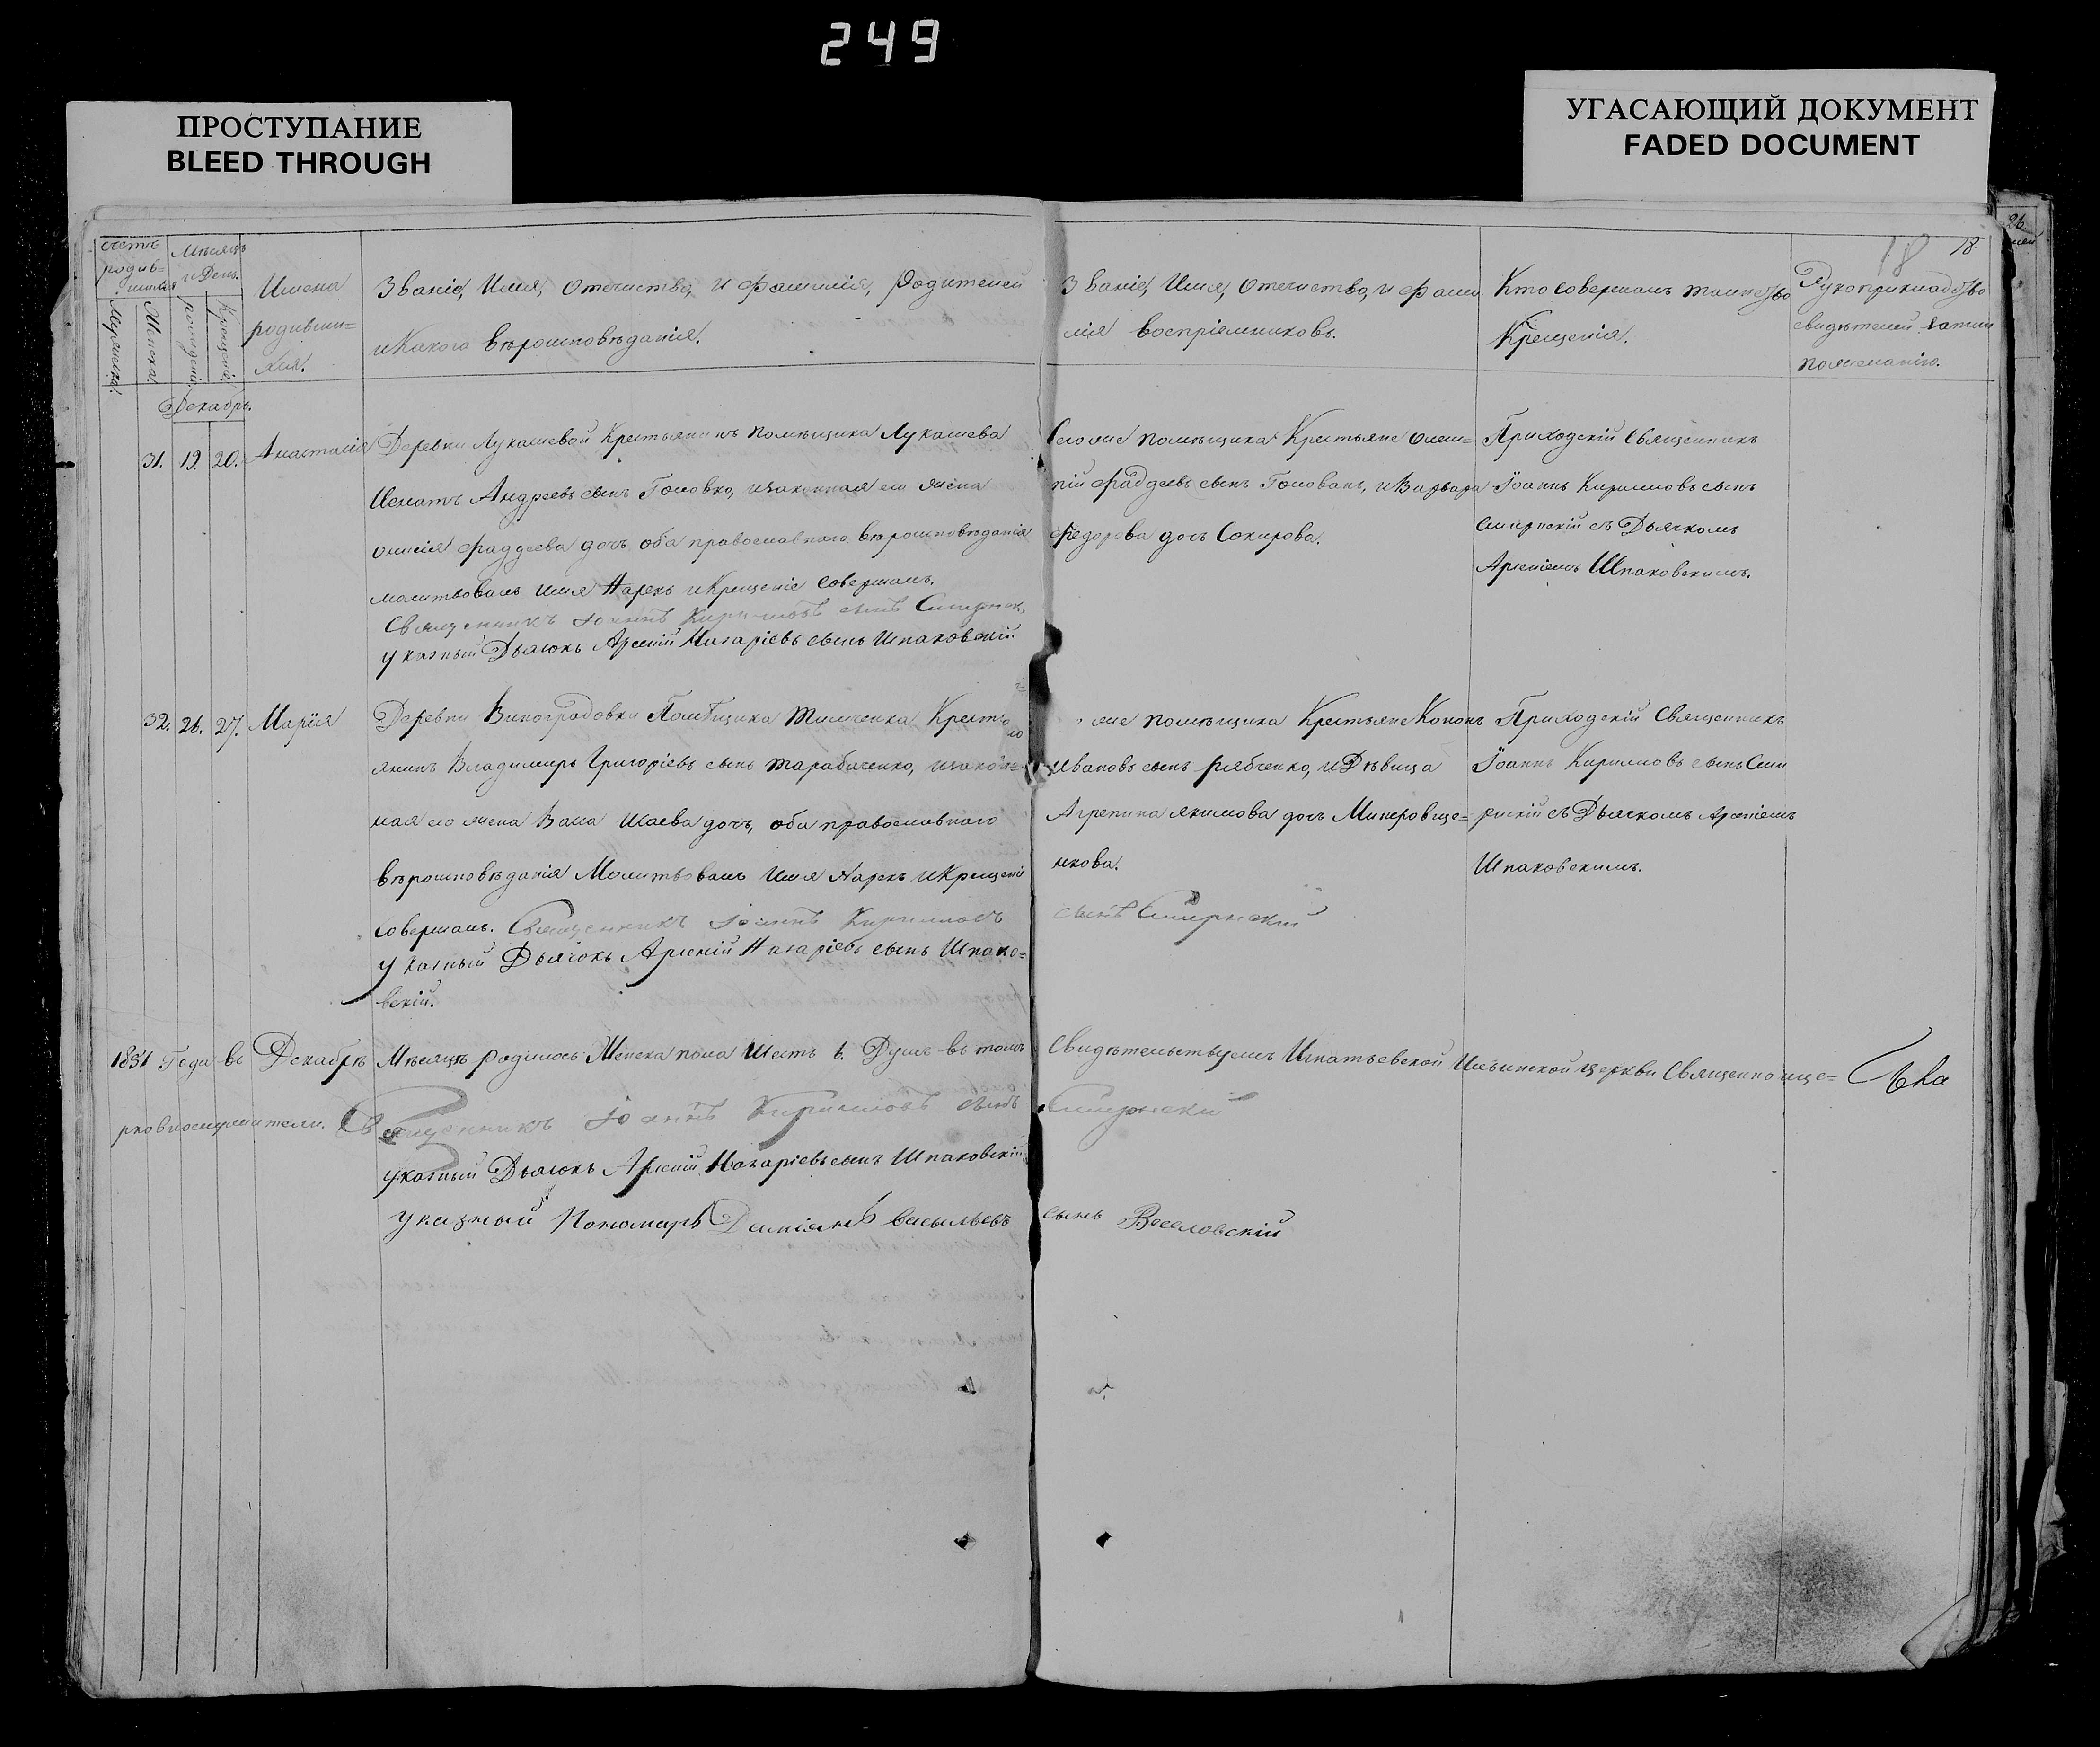 249
ПРОСТУПАНИЕ
BLEED THROUGH
УГАСАЮЩИЙ ДОКУМЕНТ
FADED DOCUMENT
26
18 18.
Счетъ родив-шихся
Мужеска.
Женска.
Мѣсяцъ и День.
рожденій.
Крещенія.
Имена
родивши=
хся.
Званіе, Имя, Отечиство, и фамилія, Родителей
и Какого вѣроисповѣданія.
Званіе, Имя, Отечиство, и фами
лія воспріемниковъ.
Кто совершалъ таинство
Крещенія.
Рукоприкладство
свидѣтелей записи
пожеланію.
Декабрь.
31. 19. 20. Анастасія
Деревни Лукашевой Крестьянинъ помѣщика Лукашева
Игнатъ Андреевъ сынъ Головко, изаконная его жена
фаддеева дочь, оба православнаго вѣроисповѣданія
молитвовалъ имя Нарекъ и Крещеніе совершалъ.
Священникъ Іоаннъ Кирилловъ сынъ
указный Дьячокъ Арсеній Назаріевъ сынъ Шпаковскій
Того же помѣщика Крестьяне
фаддеевъ сынъ Головань, и Варвара
Федорова дочь Сокирова.
Приходскій Священникъ
Іоаннъ Кирилловъ сынъ
съ Дьячкомъ
Арсеніемъ Шпаковскимъ.
32. 26. 27. Марія
Деревни Виноградовки Помѣщика Тимченка Крестъ
янинъ Владимиръ Григоріевъ сынъ Тарабаченко, изакон=
ная его жена дочь, оба православнаго
вѣроисповѣданія Молитвовалъ имя Нарекъ и Крещеніе
совершалъ. Священникъ Іоаннъ Кирилловъ
сынъ
указный Дьячокъ Арсеній Назаріевъ сынъ Шпако=
вскій.
же помѣщика Крестьяне Кононъ
Ивановъ сынъ Рябченко, и Дѣвица
Агрепина Якимова дочь
нкова.
Приходскій Священникъ
Іоаннъ Кирилловъ сынъ
съ Дьячкомъ Арсеніемъ
Шпаковскимъ.
1851 Года въ Декабрѣ Мѣсяцѣ родилось Женска пола Шесть 6. Душъ въ томъ Свидѣтельствуемъ Игнатьевской Ильинской церкви Священно и це=
рковнослужители. Священникъ Іоаннъ Кирилловъ сынъ
указный Дьячокъ Арсеній Назаріевъ сынъ Шпаковскій
указный Пономарь Даміанъ Васильевъ сынъ Веселовскій